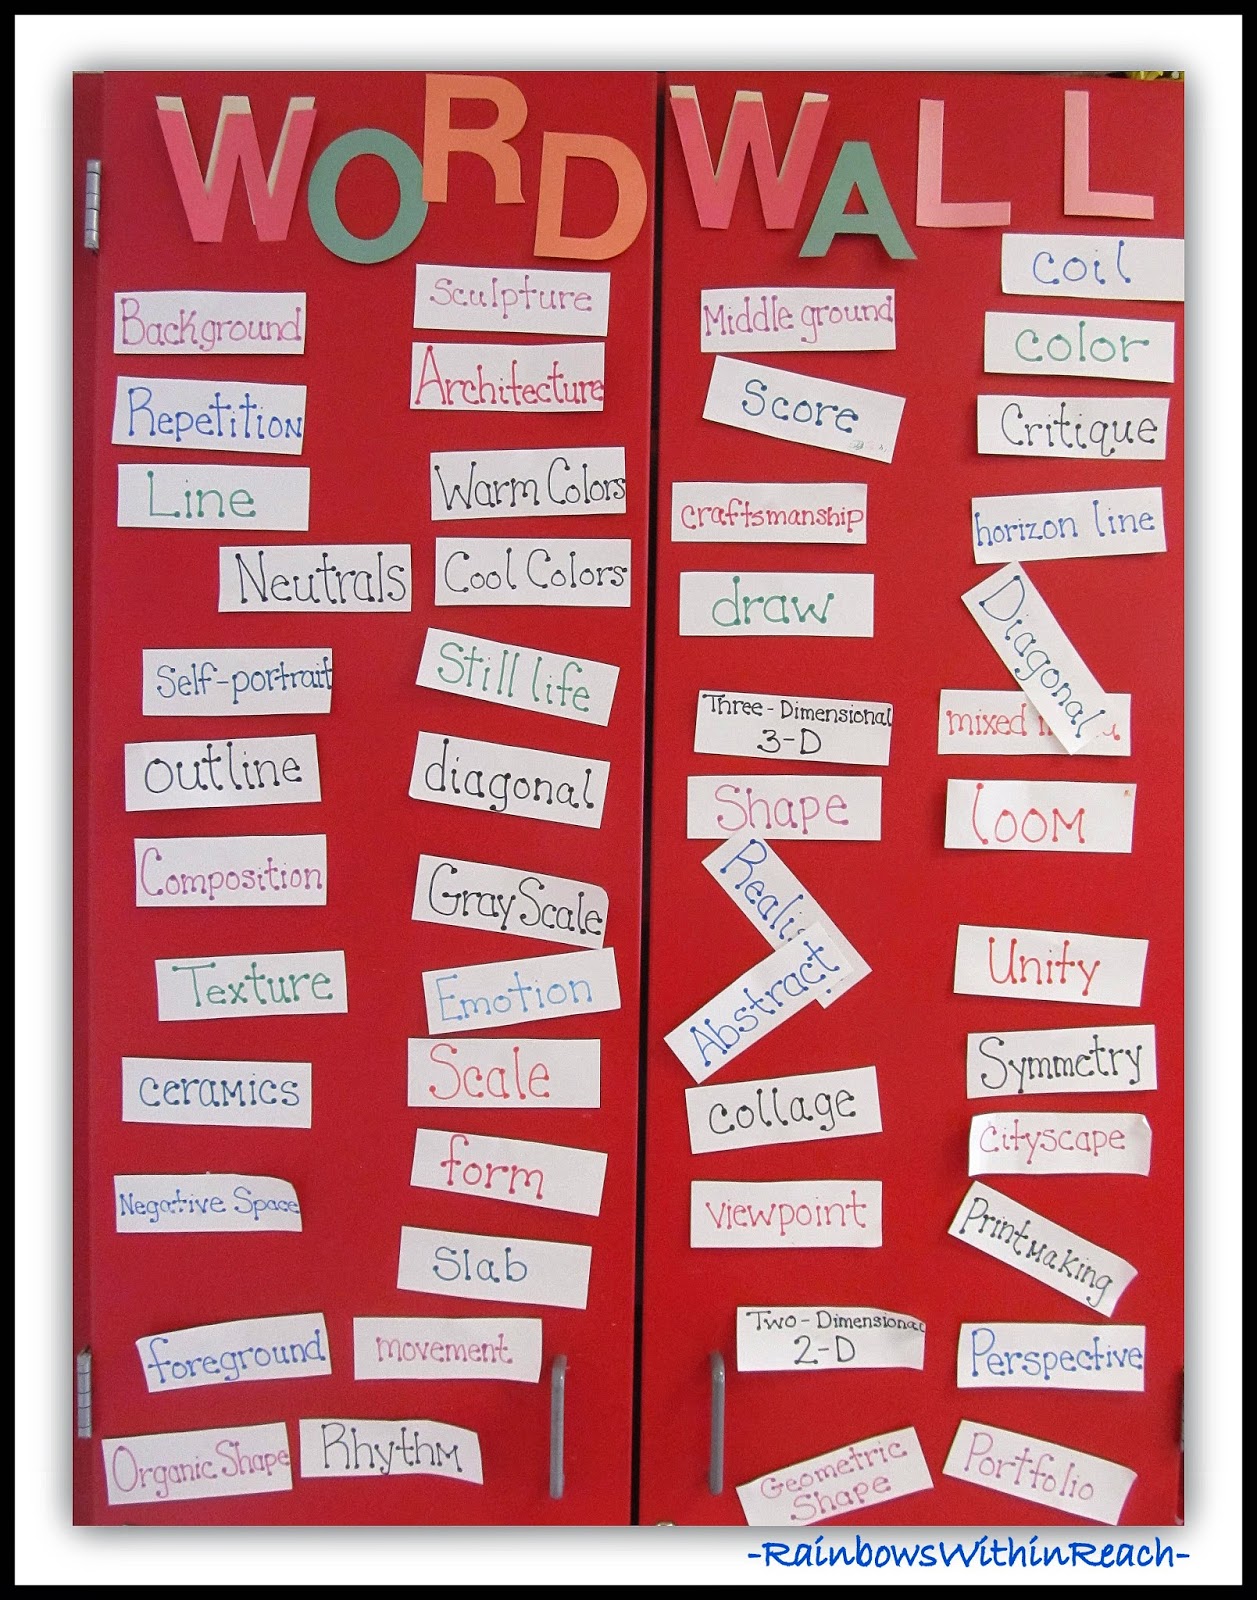 WORD WALL
Background
Repetition
Line
Neutrals
Self-portrait
outline
Composition
Texture
ceramics
Negative Space
foreground
Organic Shape
Sculpture
Architecture
Warm Colors
Cool Colors
Still life
diagonal
Gray Scale
Emotion
Scale
form
Slab
movement
Rhythm
Middle ground
Score
craftsmanship
draw
Three-Dimensional
3-D
Shape
Abstract
collage
viewpoint
Two-Dimensional
2-D
Geometric
Shape
coil
color
Critique
horizon line
Diagonal
mixed
loom
Unity
Symmetry
cityscape
Printmaking
Perspective
Portfolio
-RainbowsWithinReach-